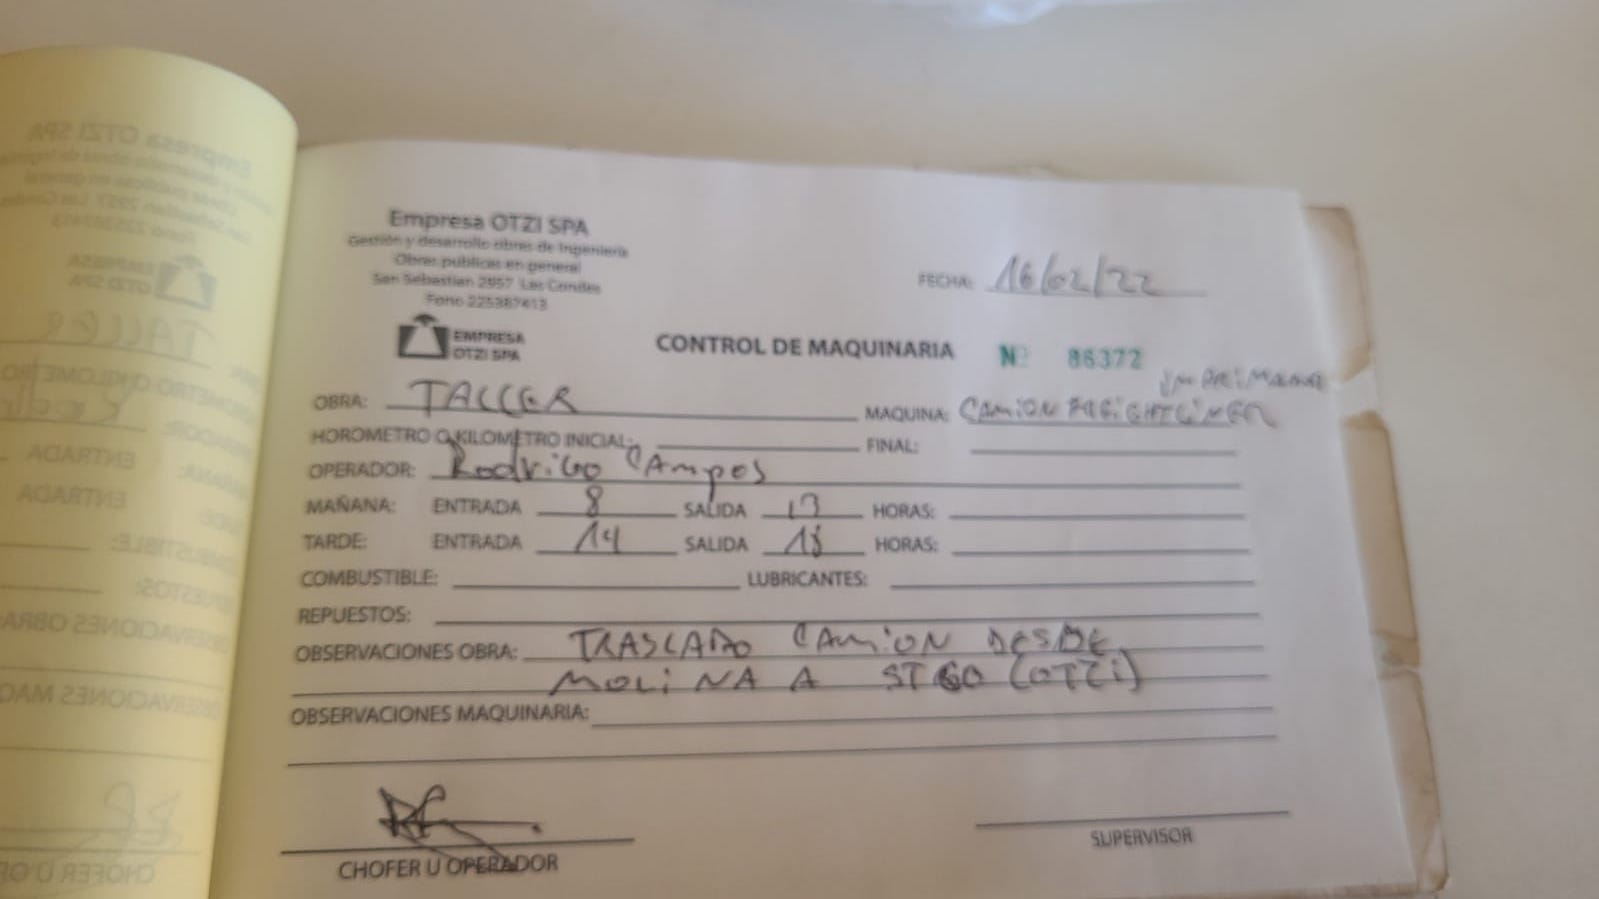 Empresa OTZI SPA
Gestión y desarrollo obras de Ingenieria
Obras publicas en general
San Sebastian 2957 Las Condes
Fono 225387413
EMPRESA
OTZI SPA
FECHA: 16/02/22
CONTROL DE MAQUINARIA Nº 86372
OBRA: TALLER MAQUINA: CAMION FREIGHTLINER
HOROMETRO O KILOMETRO INICIAL: FINAL:
OPERADOR: Rodrigo CAmpos
MAÑANA: ENTRADA 8 SALIDA 13 HORAS:
TARDE: ENTRADA 14 SALIDA 18 HORAS:
COMBUSTIBLE: LUBRICANTES:
REPUESTOS:
OBSERVACIONES OBRA: TRASLADO CAMION DESDE
MOLINA A STGO (OTZI)
OBSERVACIONES MAQUINARIA:
CHOFER U OPERADOR
SUPERVISOR